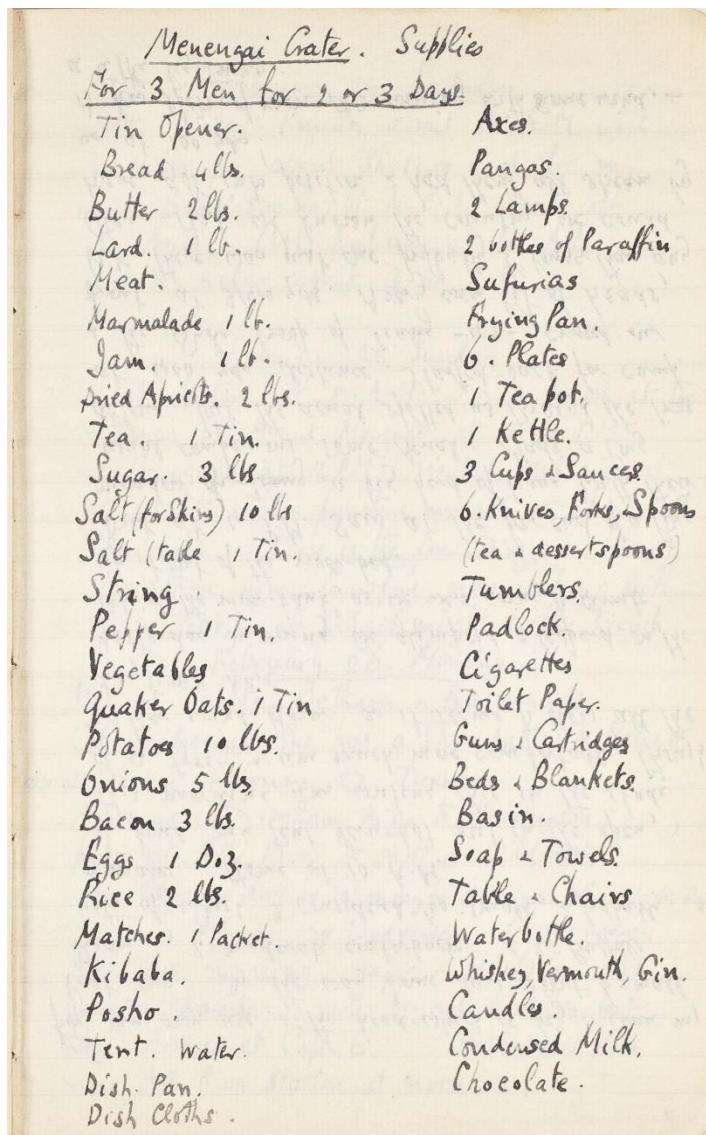 Menengai Crater. Supplies
For 3 Men for 2 or 3 Days.
Tin Opener.
Bread 4 lbs.
Butter 2 lbs.
Lard. 1 lb.
Meat.
Marmalade 1 lb.
Jam. 1 lb.
Dried Apricots. 2 lbs.
Tea. 1 Tin.
Sugar. 3 lbs
Salt (for Skins) 10 lbs
Salt (table 1 Tin.
String
Pepper 1 Tin.
Vegetables
Quaker Oats. 1 Tin
Potatoes 10 lbs.
Onions 5 lbs.
Bacon 3 lbs.
Eggs 1 Doz.
Rice 2 lbs.
Matches. 1 Packet.
Kibaba.
Posho.
Tent. Water.
Dish Pan.
Dish Cloths.
Axes.
Pangas.
2 Lamps.
2 bottles of Paraffin
Sufurias
Frying Pan.
6. Plates
1 Teapot.
1 Kettle.
3 Cups & Sauces.
6. Knives, Forks, Spoons
(tea & dessertspoons)
Tumblers.
Padlock.
Cigarettes
Toilet Paper.
Guns & Cartridges
Beds & Blankets.
Basin.
Soap & Towels.
Table & Chairs
Waterbottle.
Whiskey, Vermouth, Gin.
Candles.
Condensed Milk.
Chocolate.